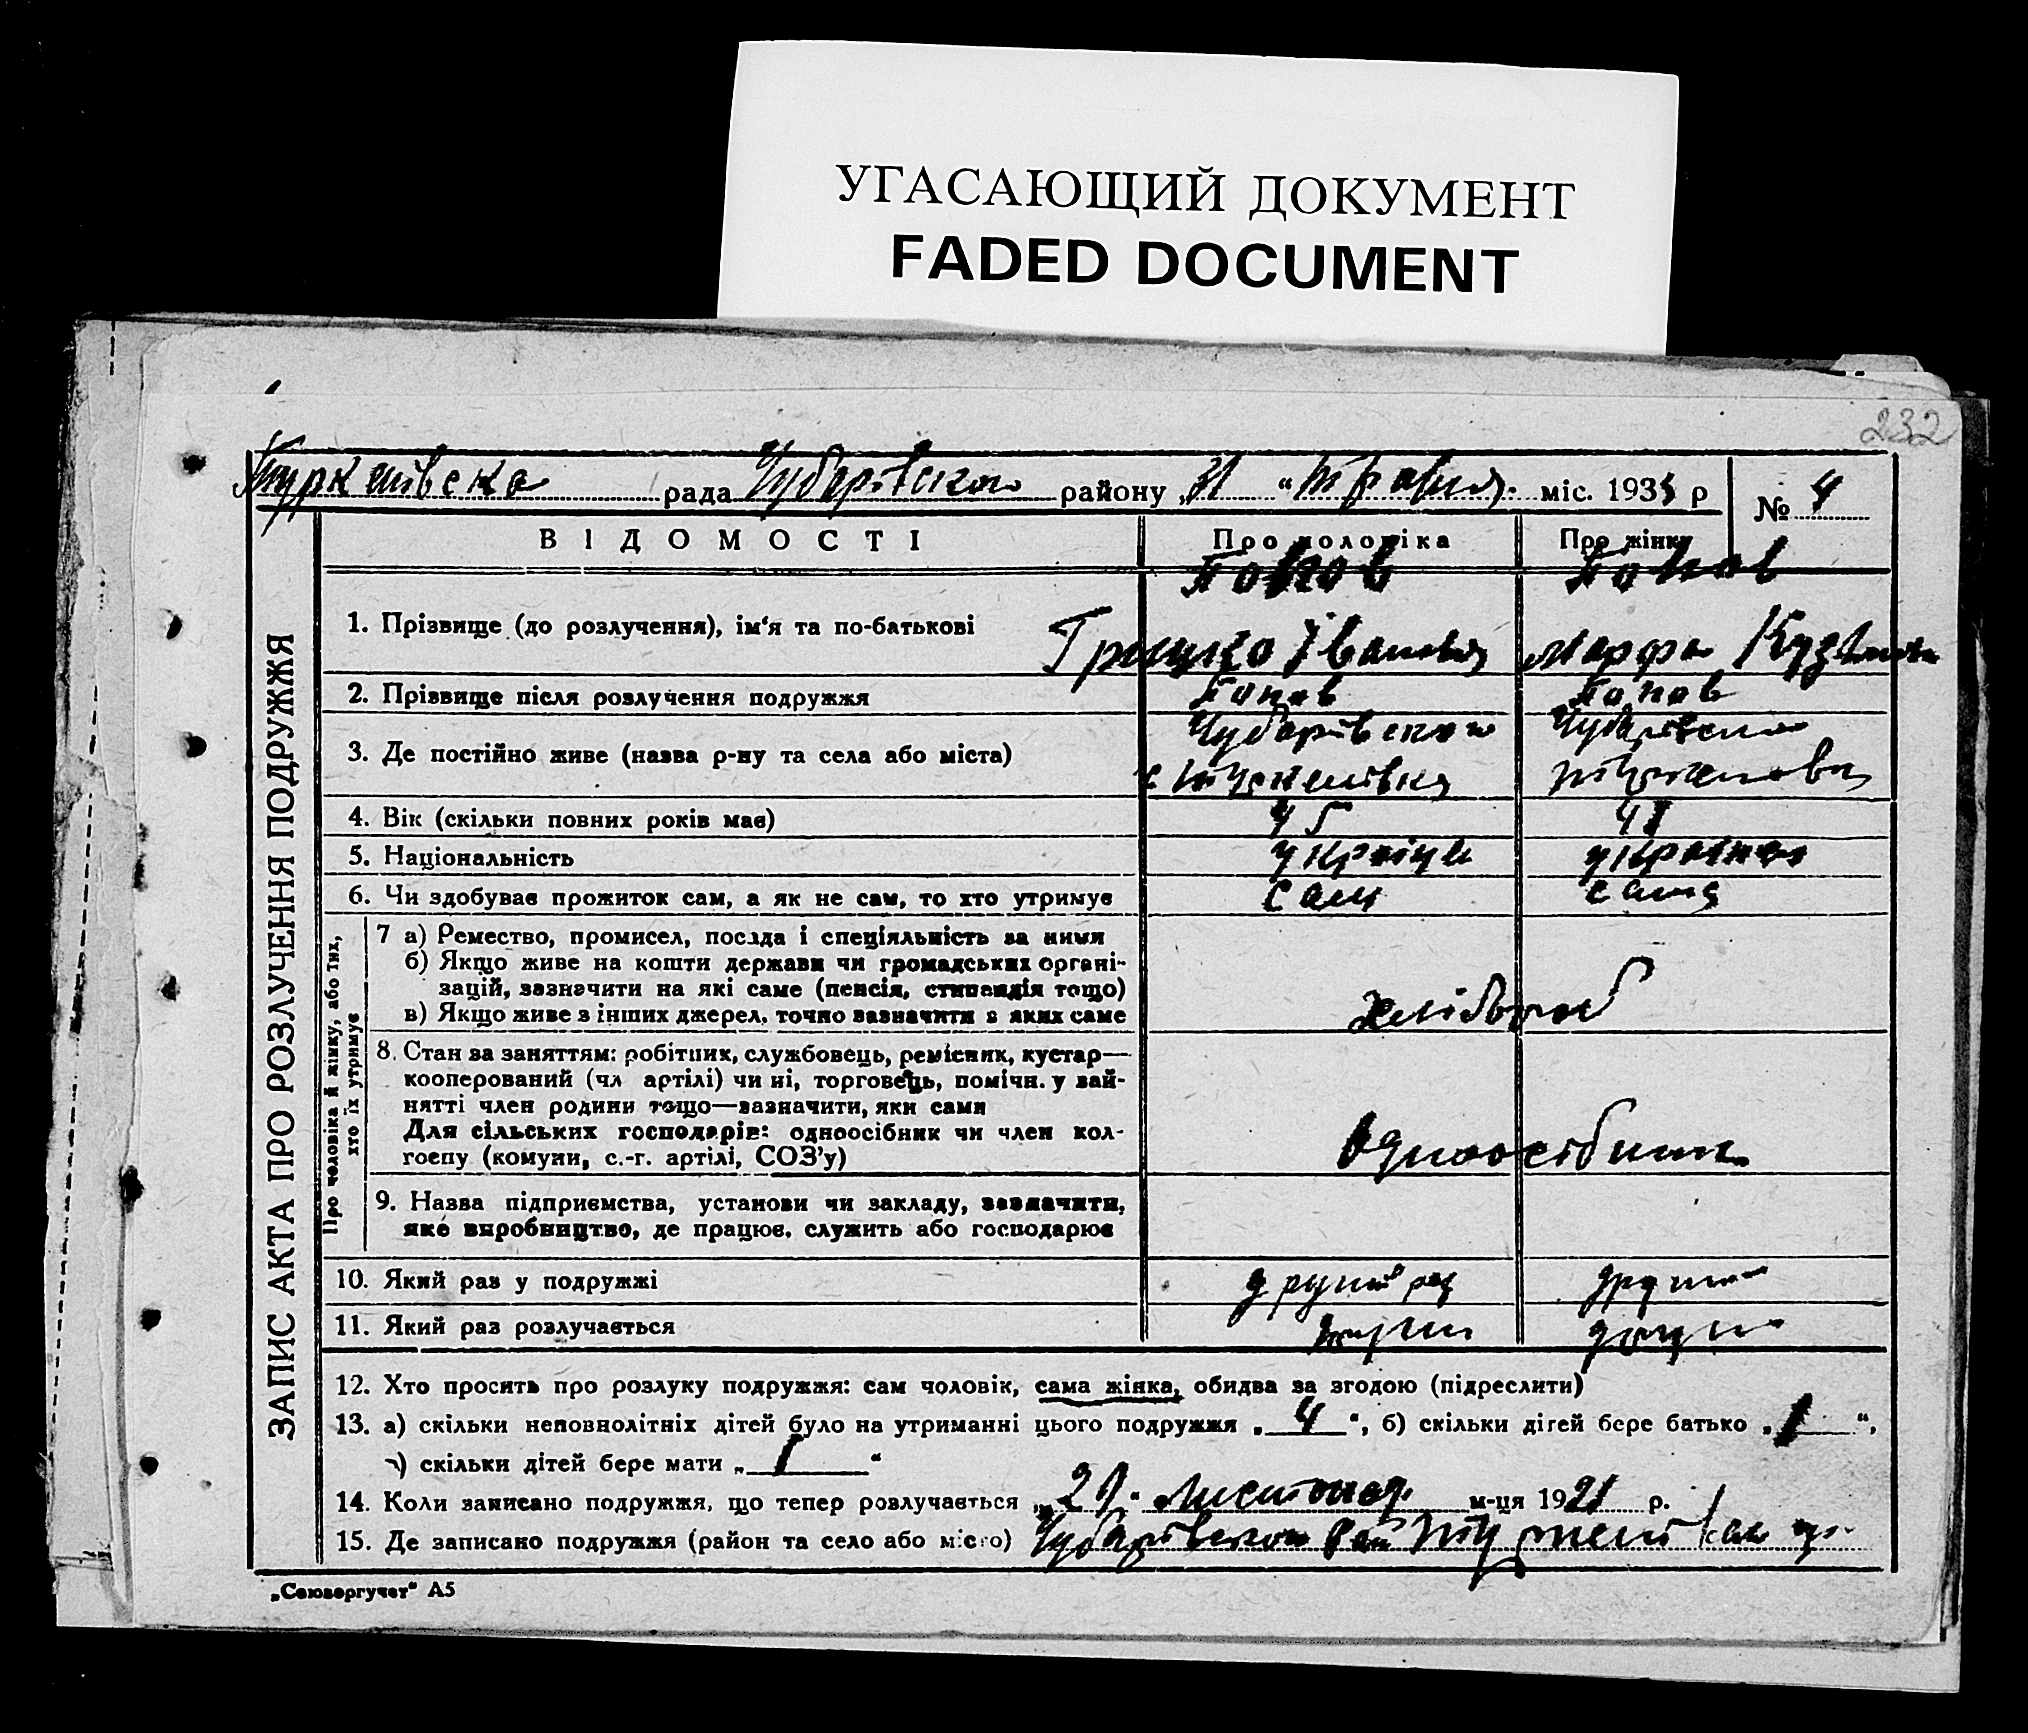 УГАСАЮЩИЙ ДОКУМЕНТ
FADED DOCUMENT
232
рада Чубарівского району „31 “ травня міс. 193 р № 4
ЗАПИС АКТА ПРО РОЗЛУЧЕННЯ ПОДРУЖЖЯ
ВІДОМОСТІ Про чоловіка Про жінку
Попов Попов
1. Прізвище (до розлучення), ім‘я та по-батькові Грицько Іванович Марфа
2. Прізвище після розлучення подружжя Попов Попов
3. Де постійно живе (назва р-ну та села або міста) Чубарівского Чубарівского
4. Вік (скільки повних років має) 45 41
5. Національність українц українка
6. Чи здобуває прожиток сам, а як не сам, то хто утримує сам сама
Про чоловіка й жінку, або тих, хто їх утримує
7 а) Ремество, промисел, посада і спеціяльність за ними
б) Якщо живе на кошти держави чи громадських органі-
зацій, зазначити на які саме (пенсія, стипендія тощо) хлібороб
в) Якщо живе з інших джерел, точно зазначити з яких саме
8. Стан за заняттям: робітник, службовець, ремісник, кустар—
кооперований (чл артілі) чи ні, торговець, помічн. у зай-
нятті член родини тощо—зазначити, яки сами
Для сільських господарів: одноосібник чи член кол-
госпу (комуни, с.-г. артілі, СОЗ’у) Одноосібник
9. Назва підприємства, установи чи закладу, зазначити,
яке виробництво, де працює, служить або господарює
10. Який раз у подружжі другий раз
11. Який раз розлучається
12. Хто просить про розлуку подружжя: сам чоловік, сама жінка, обидва за згодою (підреслити)
13. а) скільки неповнолітніх дітей було на утриманні цього подружжя „ 4 “, б) скільки дітей бере батько „ 1 “,
в) скільки дітей бере мати „ 1 “
14. Коли записано подружжя, що тепер розлучається „ “ листопад м-ця 1921 р.
15. Де записано подружжя (район та село або місто) Чубарівского рай
„Союзоргучет“ А5